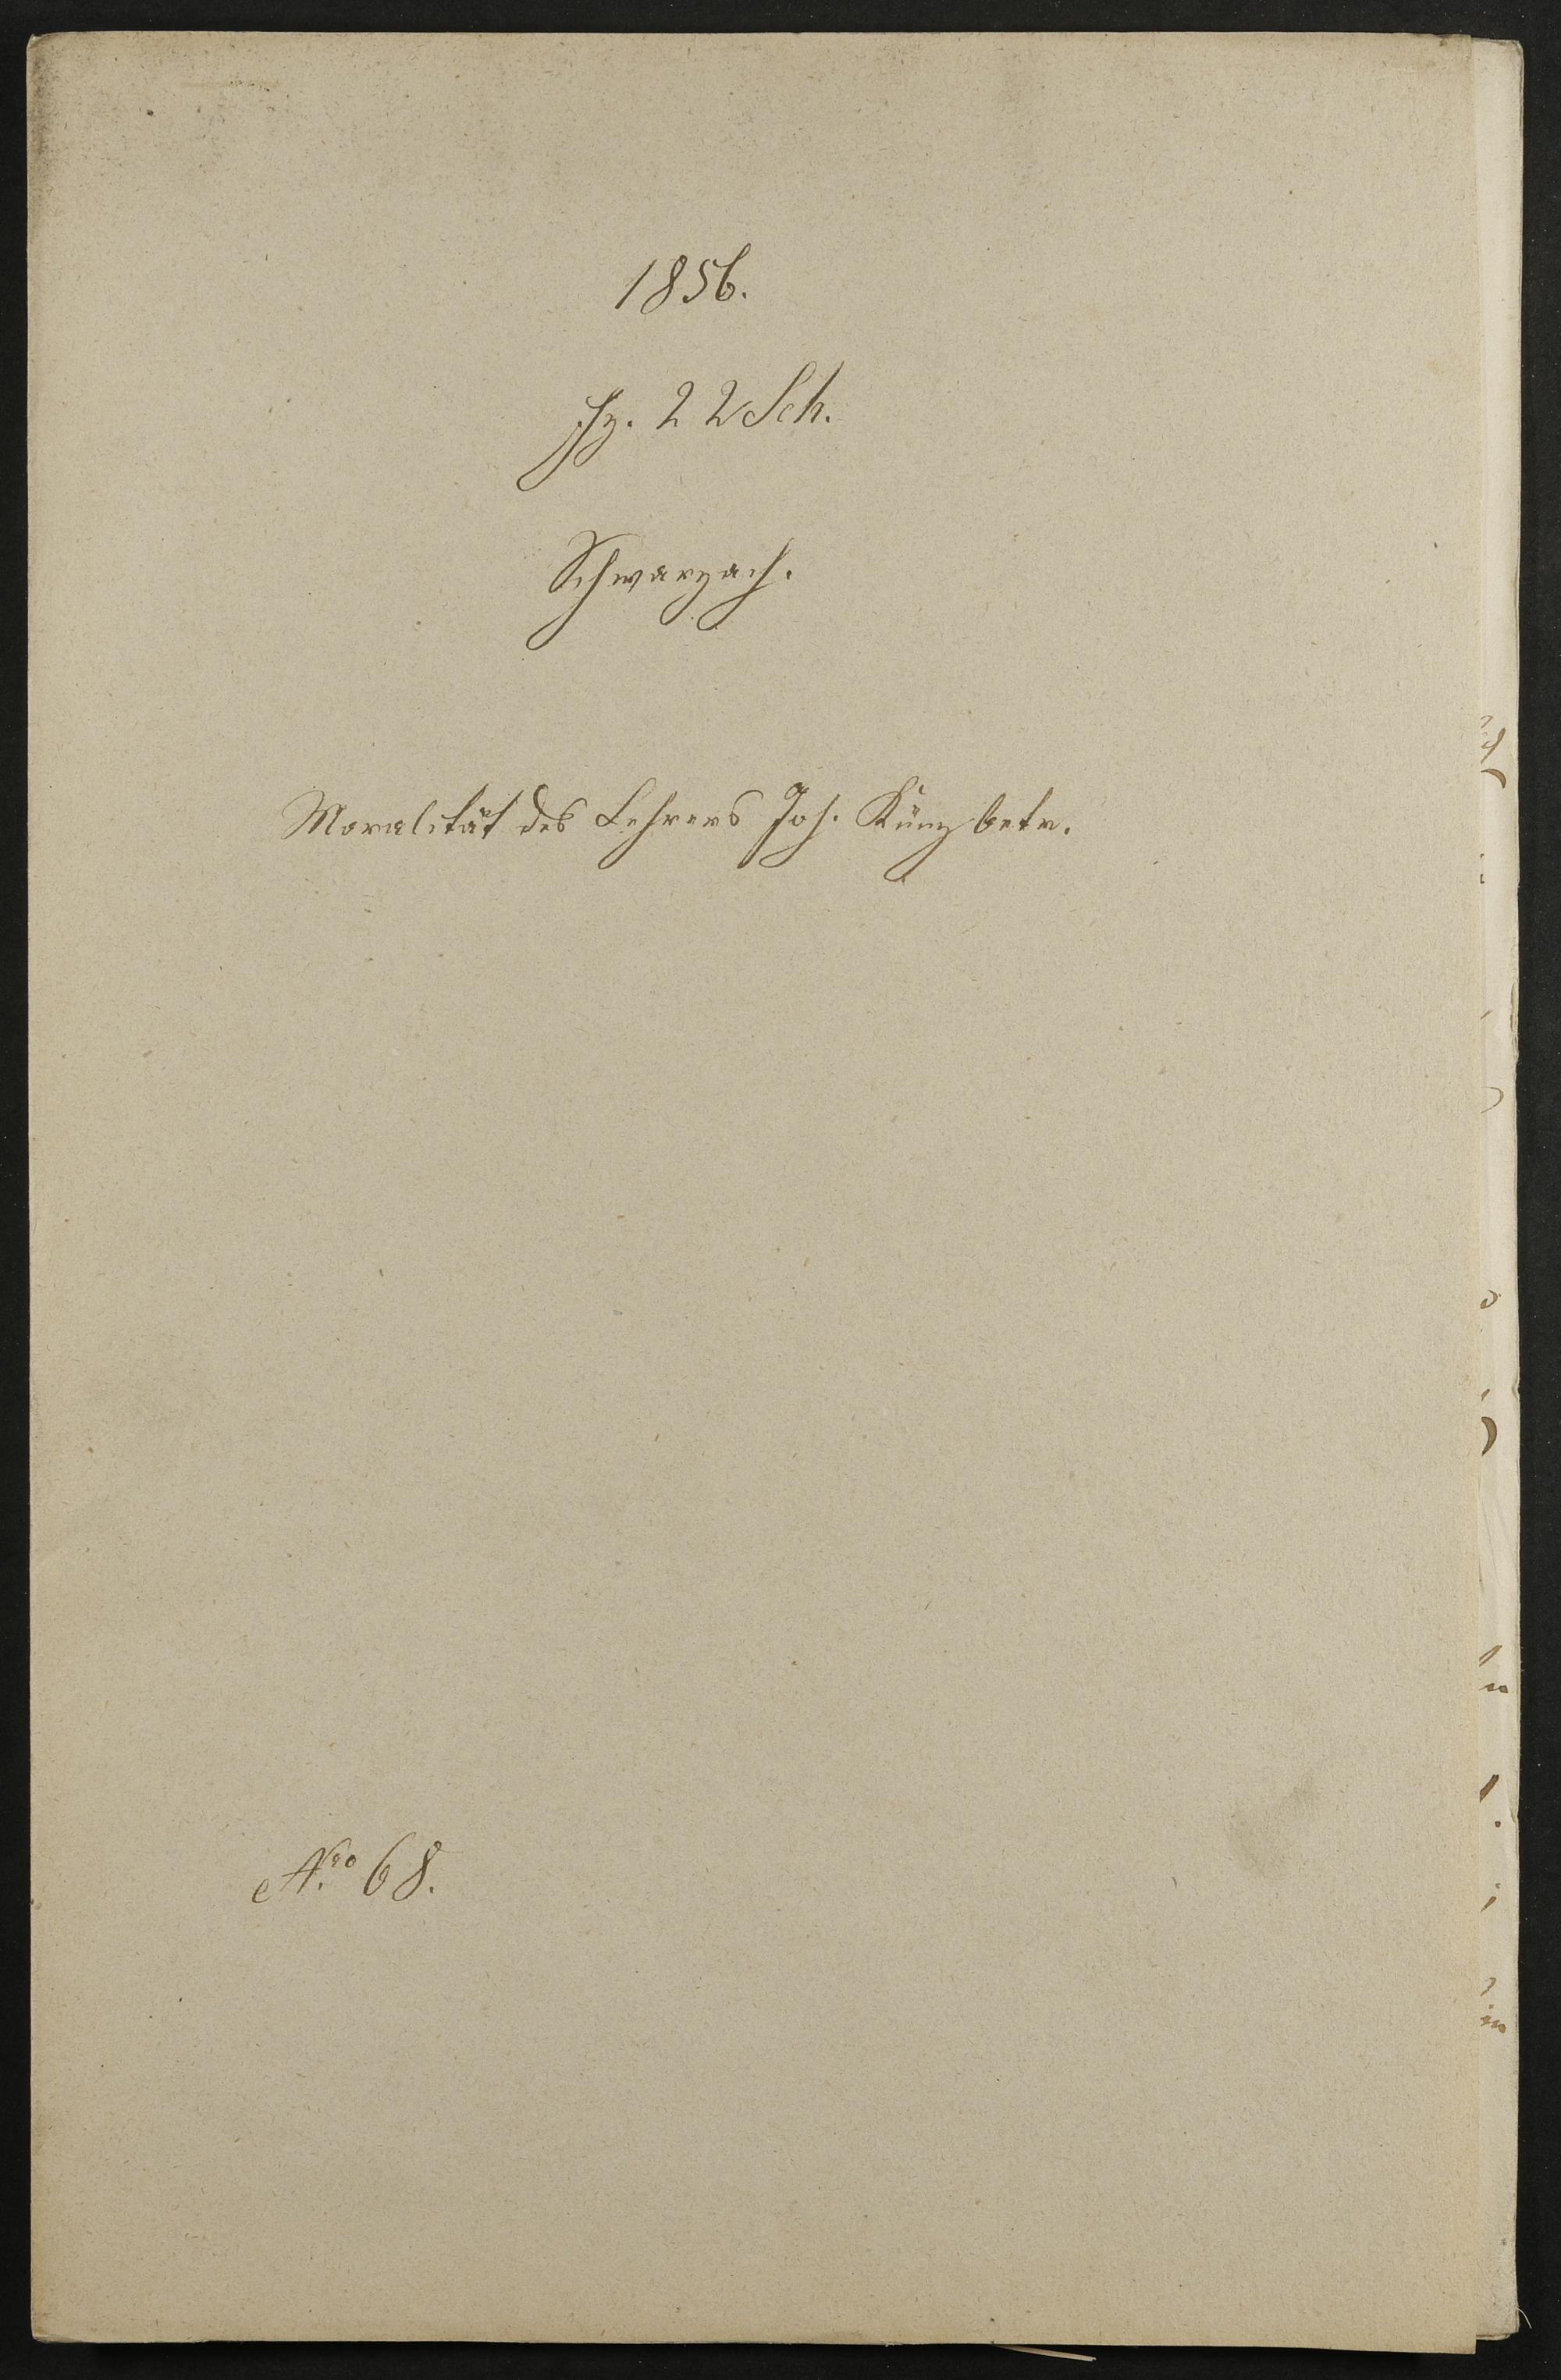 1856.
Fz. 22 Sch.
Schwarzach.
Moralität des Lehrers Joh. Künz betr.
Nro 68.